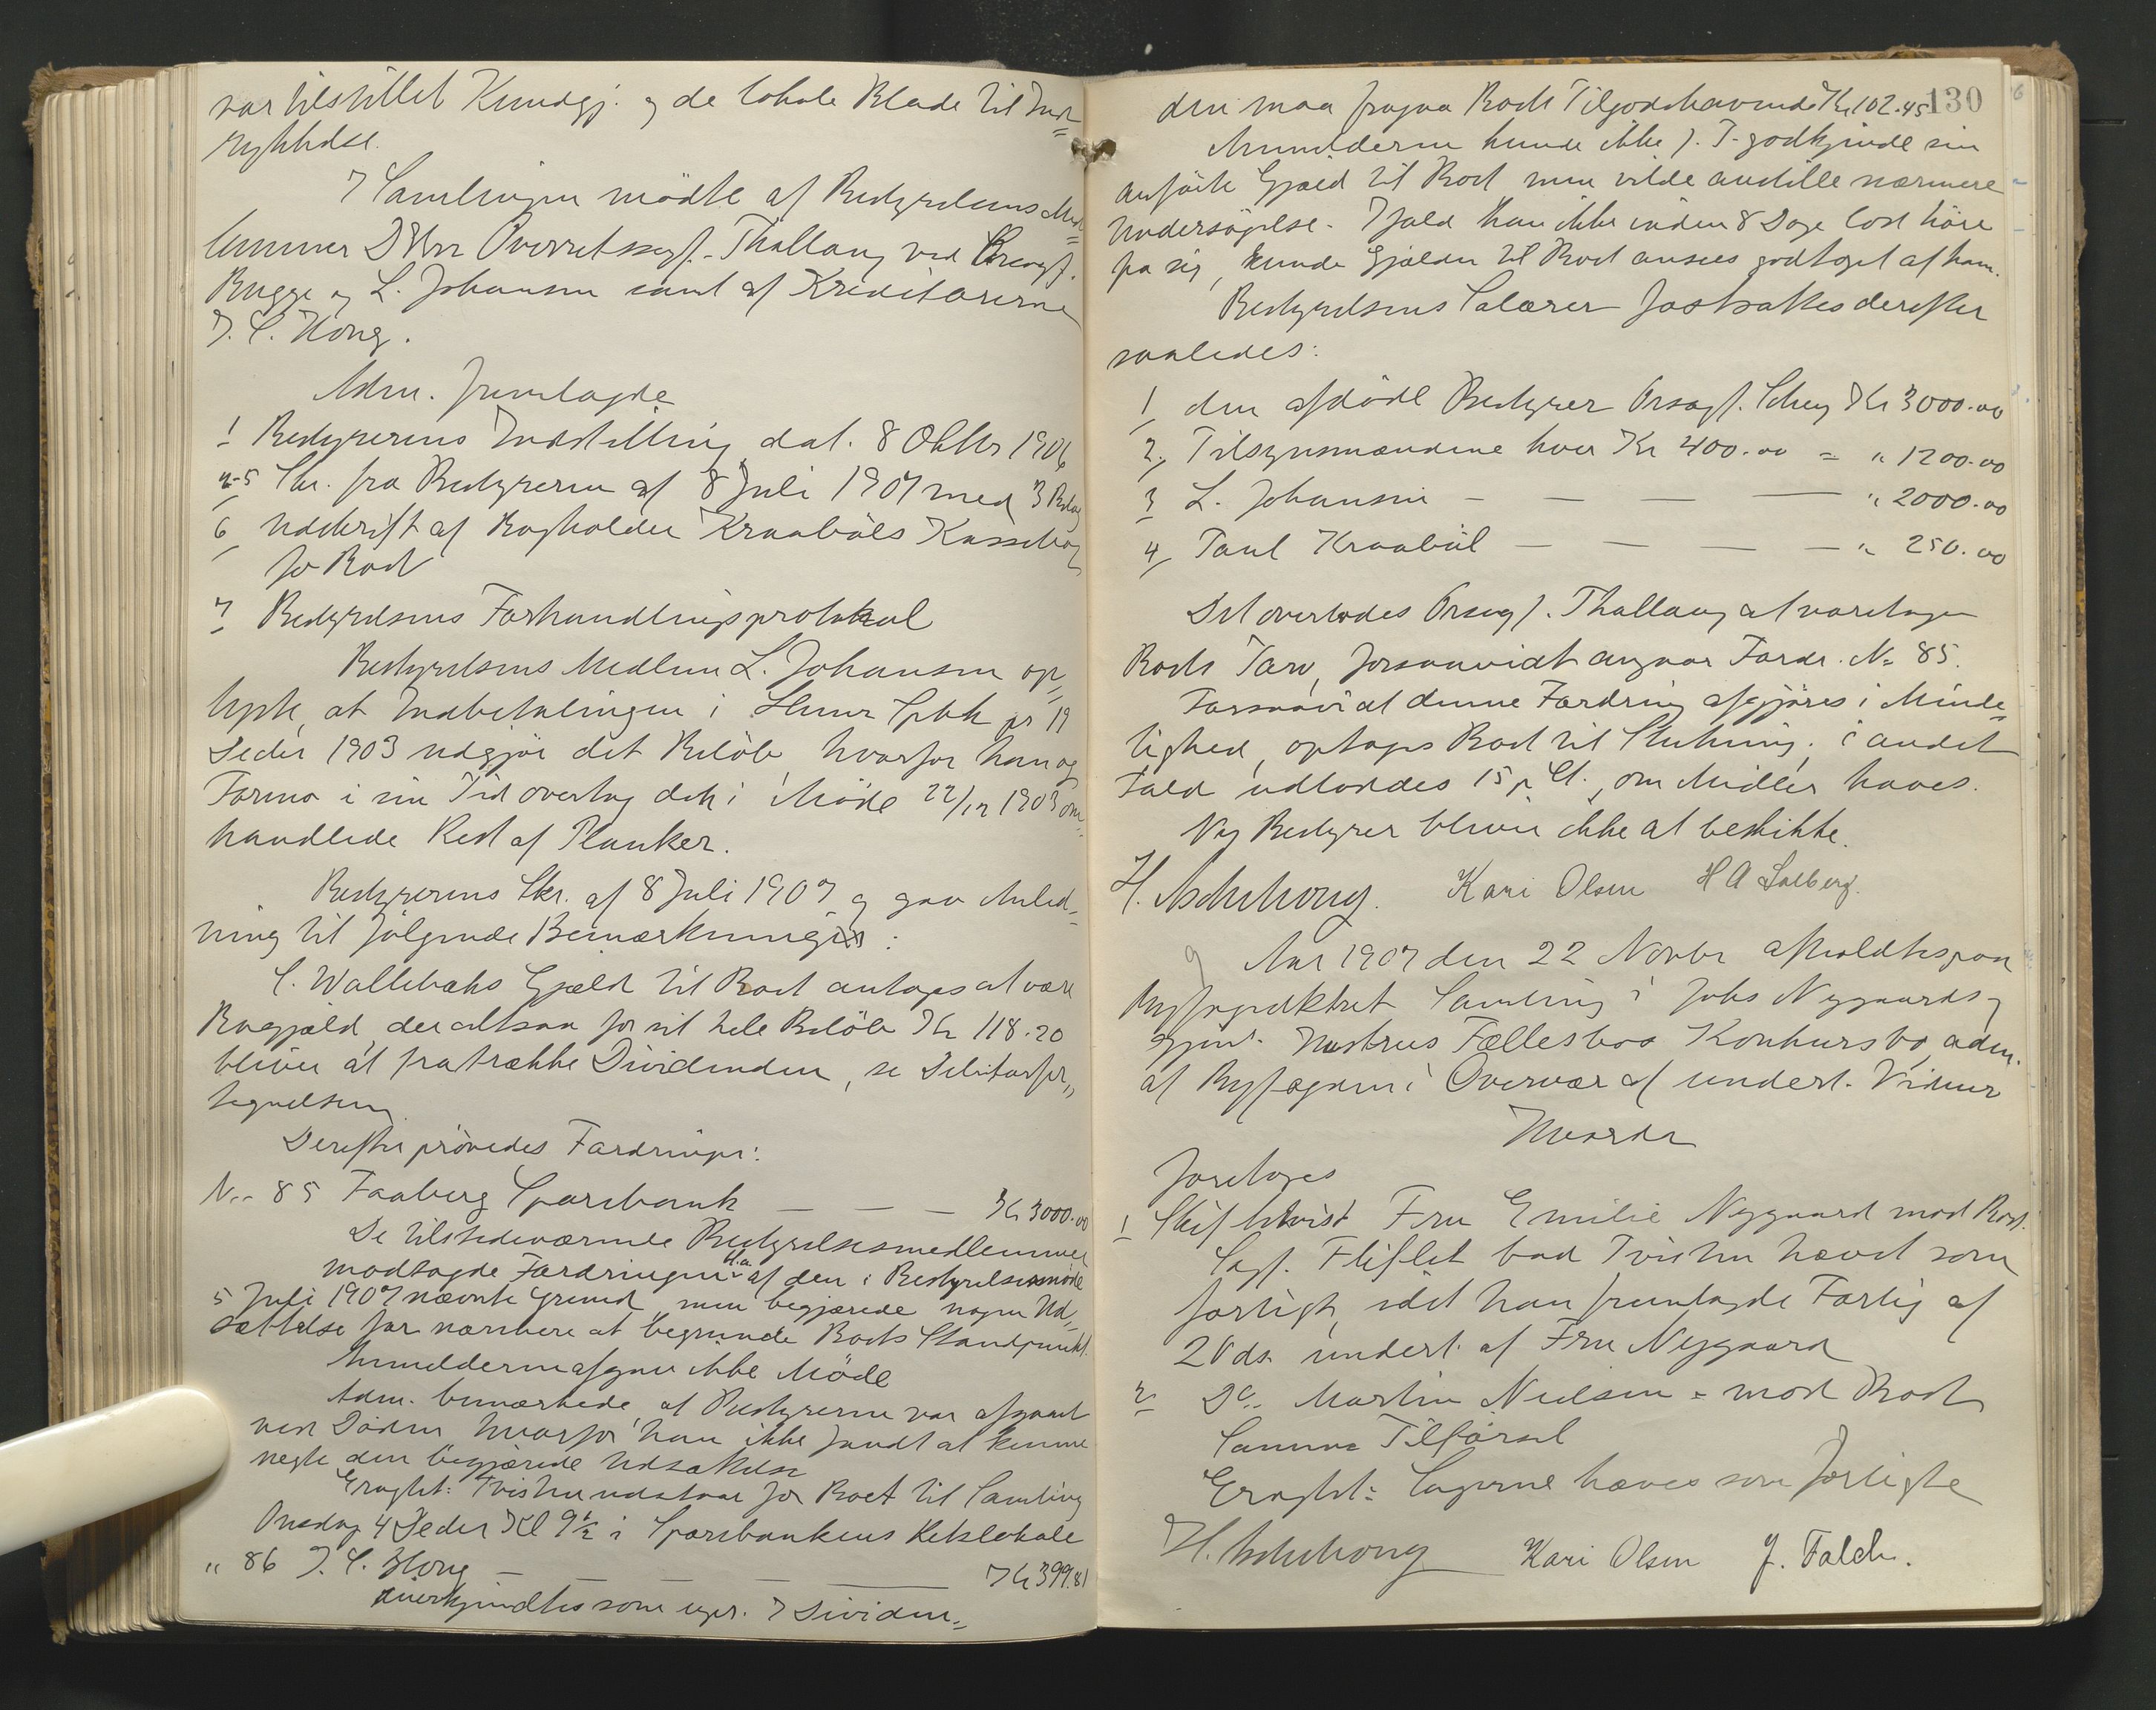 var tilstillet Kundgj. og de lokale Blade til Ind=
rykkelse.
I Samlingen mödte af Bestyrelsens Med=
lemmer D'Hrr Overretssagf. Thallaug ved Orsagf.
Bugge og L. Johansen samt af Kreditorerne
J. C. Kong.
Adm. fremlagde
1 Bestyrerens Indstilling dat. 8 Oktbr 1906
2-5 Skr. fra Bestyreren af 8 Juli 1907 med 3 Bilag
6 Udskrift af Bogholder Kraaböls Kassebog
for Boet
7 Bestyrelsens Forhandlingsprotokol
Bestyrelsens Medlem L. Johansen op=
lyste, at Indbetalingen i Hmr Spbk pr 19
Decbr 1903 udgjör det Belöb, hvorfor han og
Formo i sin Tid overtog den i Möde 22/12 1903 om=
handlede Rest af Planker.
Bestyrerens Skr. af 8 Juli 1907 og gav Anled=
ning til fölgende Bemærkninger:
C. Wallebæks Gjæld til Boet antages at være
Bogjæld, der altsaa for sit hele Belöb Kr 118.20
bliver at fratrække Dividenden, se Debitorfor=
tegnelsen
Derefter prövedes Fordringer:
No. 85 Faaberg Sparebank — — — Kr 3000.00
De tilstedeværende Bestyrelsesmedlemmer
modsagde Fordringen bl.a. af den i Bestyrelsesmöde
5 Juli 1907 nævnte Grund, men begjærede nogen Ud=
sættelse for nærmere at begrunde Boets Standpunkt.
Anmelderen afgav ikke Möde
Adm. bemærkede, at Bestyreren var afgaaet
ved Döden, hvorfor han ikke fandt at kunne
negte den begjærede Udsættelse
Eragtet: Tvisten udstaar for Boet til Samling
Onsdag 4 Decbr Kl 9½ i Sparebankens Retslokale
" 86 J. C. Kong — — — — Kr 399.81
anerkjendtes som uprr. I Dividen=
130
den maa fragaa Boets Tilgodehavende Kr 102.45
Anmelderen kunde ikke f. T. godkjende sin
anförte Gjæld til Boet men vilde anstille nærmere
Undersögelse. Ifald han ikke inden 8 Dage lod höre
fra sig, kunde Gjælden til Boet ansees godtaget af ham.
Bestyrelsens Salærer fastsattes derefter
saaledes:
1, den afdöde Bestyrer Orsagf. Schey Kr 3000.00
2, Tilsynsmændene hver Kr 400.00 = " 1200.00
3 L. Johansen — — — — " 2000.00
4, Paul Kraaböl — — — — " 250.00
Det overlodes Orsagf. Thallaug at varetage
Boets Tarv, forsaavidt angaar Fordr. No 85.
Forsaavidt denne Fordring afgjöres i Minde=
lighed, optages Boet til Slutning; i andet
Fald udloddes 15 p Ct., om Midler haves.
Ny Bestyrer bliver ikke at beskikke.
H. Aschehoug. Kari Olsen H A Solberg.
Aar 1907 den 22 Novbr afholdtes paa
Byfogedktret Samling i Johs Nygaards og
gjenl. Hustrus Fællesbos Konkursbo, adm.
af Byfogden i Overvær af undert. Vidner
Hvorda
foretoges
1 Skiftetvist Fru Emilie Nygaard mod Boet.
Sagf. Fliflet bad Tvisten hævet som
forligt, idet han fremlagde Forlig af
20 ds. underl. af Fru Nygaard
2 Do. Martin Nielsen = mod Boet
Samme Tilförsel
Eragtet: Sagerne hæves som forligte
H. Aschehoug Kari Olsen J. Falch.